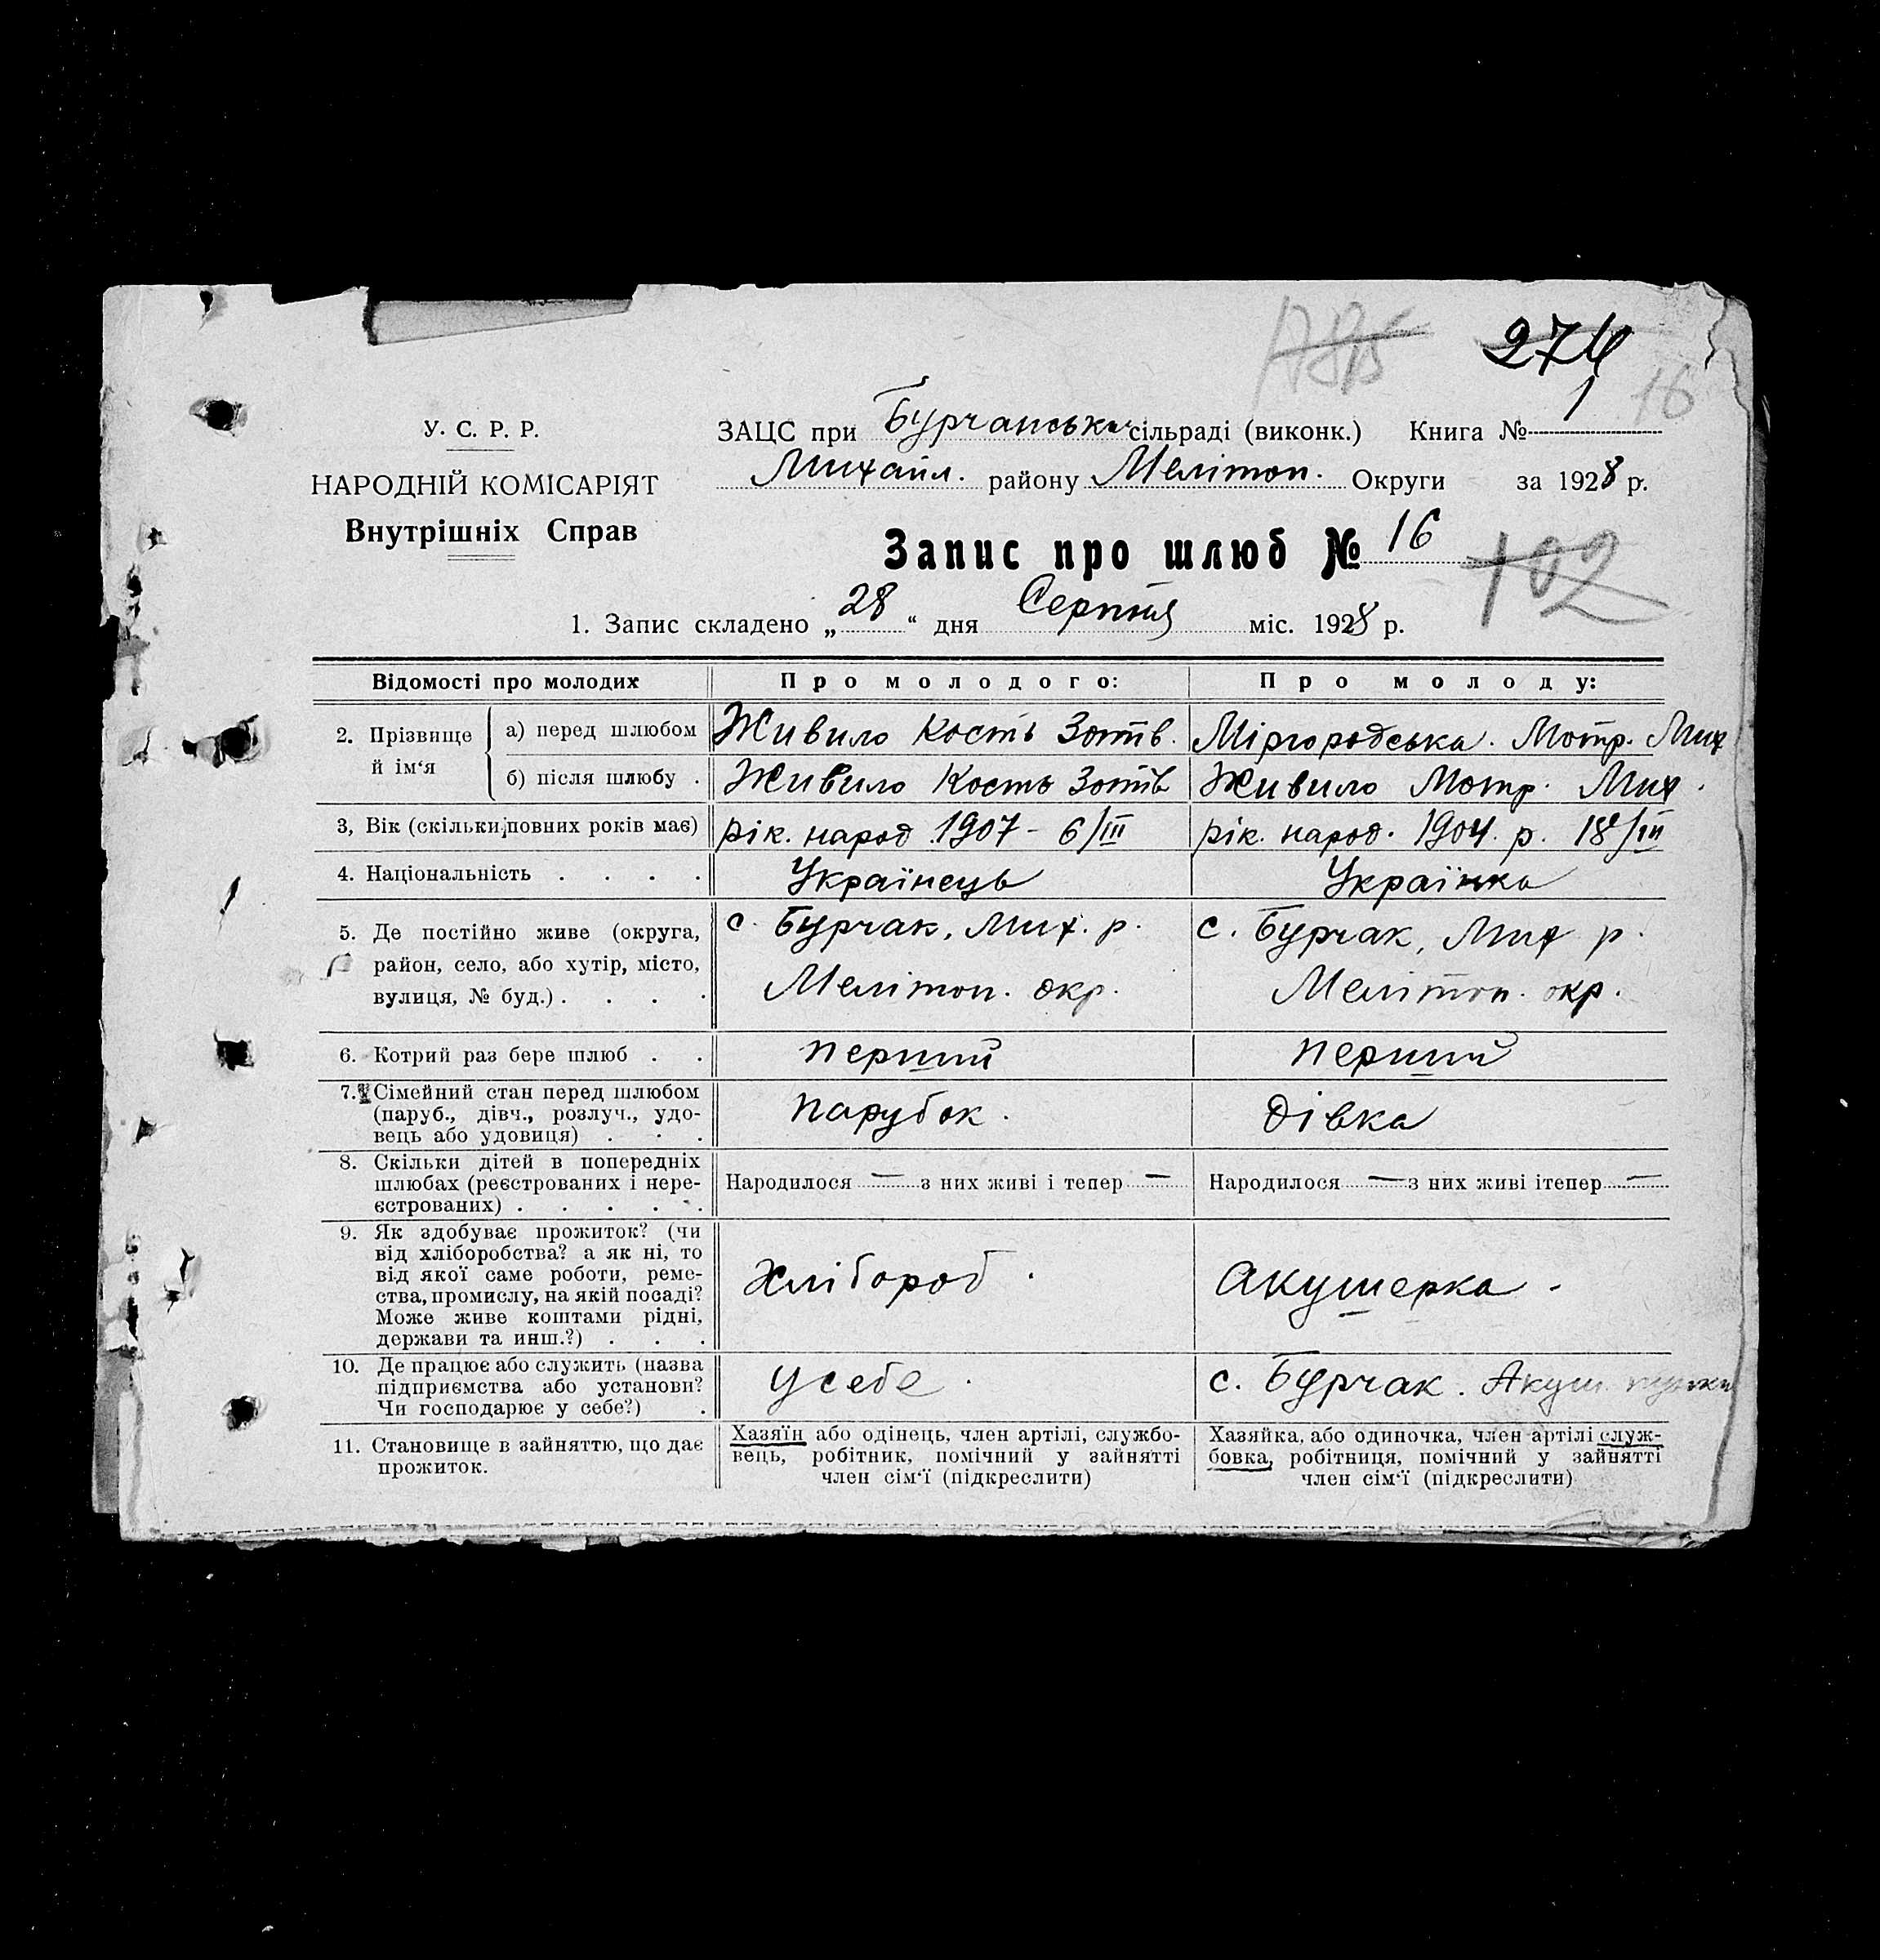 274
16
У. С. Р. Р.
НАРОДНІЙ КОМІСАРІЯТ
Внутрішніх Справ
ЗАЦС при Бурчанськ сільраді (виконк.) Книга № 1
Михайл. району Мелітоп. Округи за 1928 р.
Запис про шлюб № 16
102
1. Запис складено „28“ дня Серпня міс. 1928 р.
Відомості про молодих Про молодого: Про молоду:
2. Прізвище й ім‘я
а) перед шлюбом Живило Кость Зотів. Міргородська. Мотр. Мих
б) після шлюбу . Живило Кость Зотів Живило Мотр. Мих.
3, Вік (скільки повних років має) рік. народ 1907 - 6/III рік. народ. 1904. р. 18/III
4. Національність . . . . Українець Українка
5. Де постійно живе (округа,
район, село, або хутір, місто,
вулиця, № буд.) . . . .
с. Бурчак, Мих. р.
Мелітоп. окр.
с. Бурчак, Мих р.
Мелітоп. окр.
6. Котрий раз бере шлюб . . перший перший
7. Сімейний стан перед шлюбом
(паруб., дівч., розлуч., удо-
вець або удовиця) . . .
парубок. дівка
8. Скільки дітей в попередніх
шлюбах (реєстрованих і нере-
єстрованих) . . . . .
Народилося — з них живі і тепер — Народилося — з них живі ітепер —
9. Як здобуває прожиток? (чи
від хліборобства? а як ні, то
від якої саме роботи, реме-
ства, промислу, на якій посаді?
Може живе коштами рідні,
держави та инш.?) . . .
Хлібороб. Акушерка -
10. Де працює або служить (назва
підприємства або установи?
Чи господарює у себе?) .
у себе. с. Бурчак. Акуш
11. Становище в зайняттю, що дає
прожиток.
Хазяїн або одінець, член артілі, службо-
вець, робітник, помічний у зайнятті
член сім‘ї (підкреслити)
Хазяйка, або одиночка, член артілі служ-
бовка, робітниця, помічний у зайнятті
член сім‘ї (підкреслити)